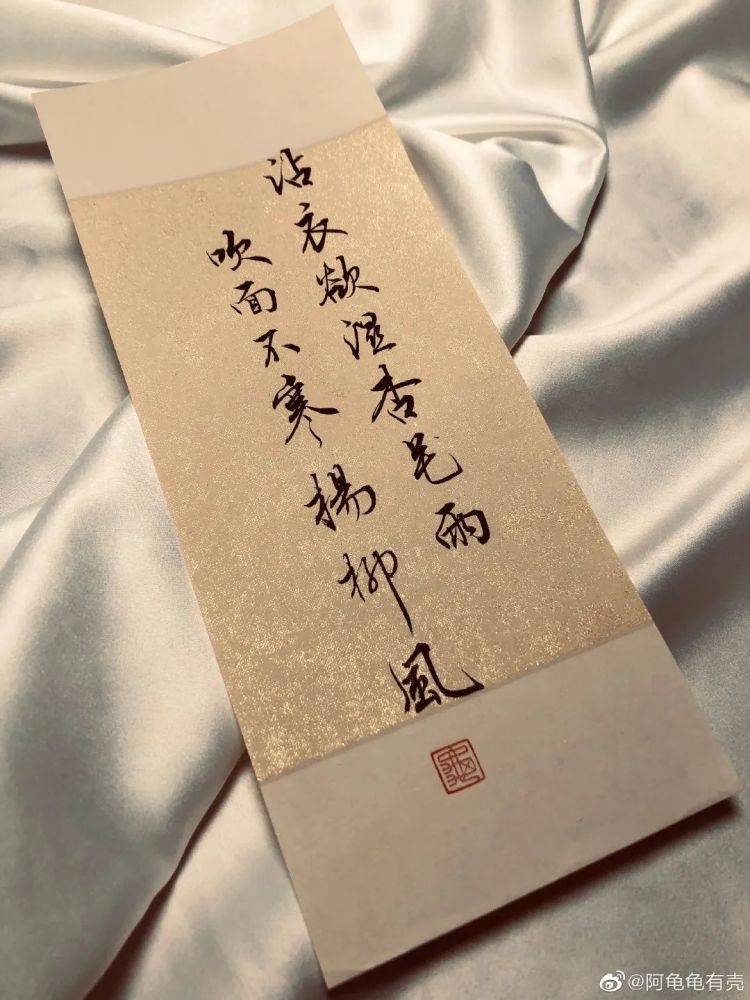 沾衣欲濕杏花雨
吹面不寒楊柳風
@阿龟龟有壳